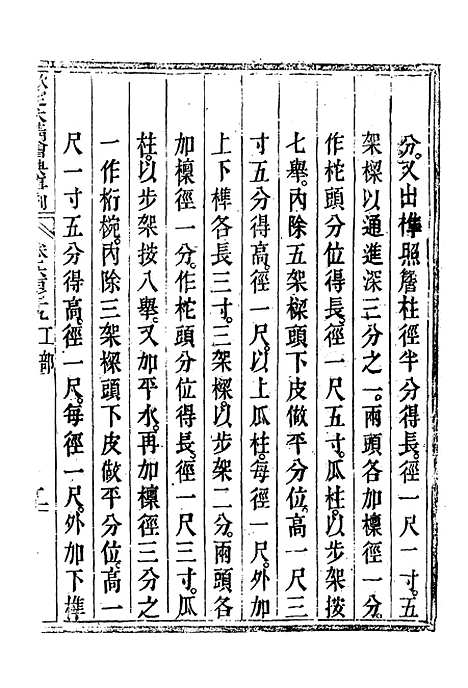 分。又出榫照簷柱徑半分得長。徑一尺一寸。五
架樑以通進深三分之一。兩頭各加檁徑一分。
作柁頭分位得長。徑一尺五寸。瓜柱。以步架按
七舉。內除五架樑頭下皮做平分位。高一尺三
寸五分得高。徑一尺。以上瓜柱。每徑一尺。外加
上下榫各長三寸。三架樑。以步架二分。兩頭各
加檁徑一分。作柁頭分位得長。徑一尺三寸。瓜
柱。以步架按八舉。又加平水。再加檁徑三分之
一作桁椀。內除三架樑頭下皮做平分位。高一
尺一寸五分得高。徑一尺。每徑一尺。外加下榫
欽定大清會典則例
工部